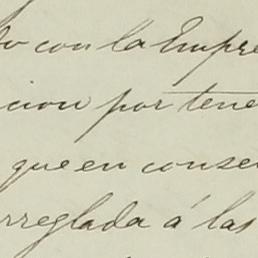 do con la Empre
cion por tene
que en conse
rreglada á las